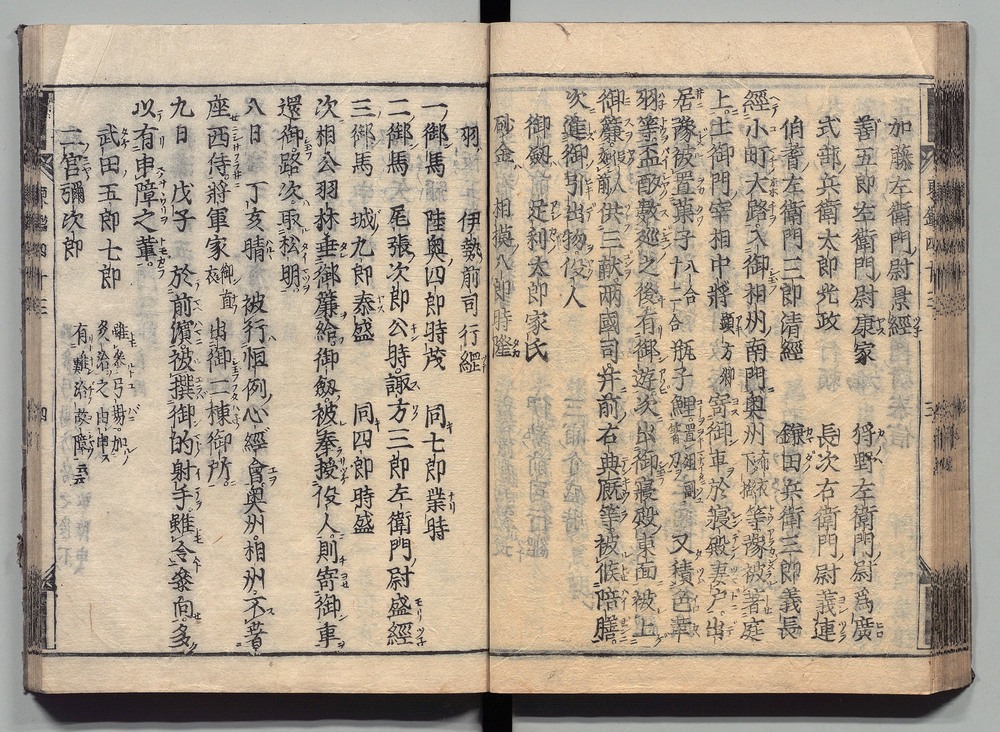 加藤左衛門尉景經
善五郎左衛門尉康家　狩野左衛門尉爲廣
式部兵衛太郎光政　長次右衛門尉義連
伯耆左衛門三郎清經　鎌田兵衛三郎義長
經小町大路入御相州南門奥州等豫被著庭
上土御門宰相中將顯方卿寄御車於寢殿妻戸出
居豫被置菓子十二合瓶子鯉又積色革
羽等盃酌數巡之後有御遊次出御寢殿東面被上
御簾供三献兩國司并前右典厩等被候陪膳
次進御引出物役人
御劔　足利太郎家氏
砂金　相摸八郎時隆
羽　伊勢前司行經
一御馬　陸奥四郎時茂　同七郎業時
二御馬　尾張次郎公時　諏方三郎左衛門尉盛經
三御馬　城九郎泰盛　同四郎時盛
次相公羽林垂御簾給御劔被奉授役人則寄御車
還御路次取松明
八日　丁亥晴　被行恒例心經會奥州相州不著
座西侍將軍家出御二棟御所
九日　戊子　於前濱被撰御的射手雖令參向多
以有申障之輩
武田五郎七郎
二宮彌次郎
東鑑四十三　四